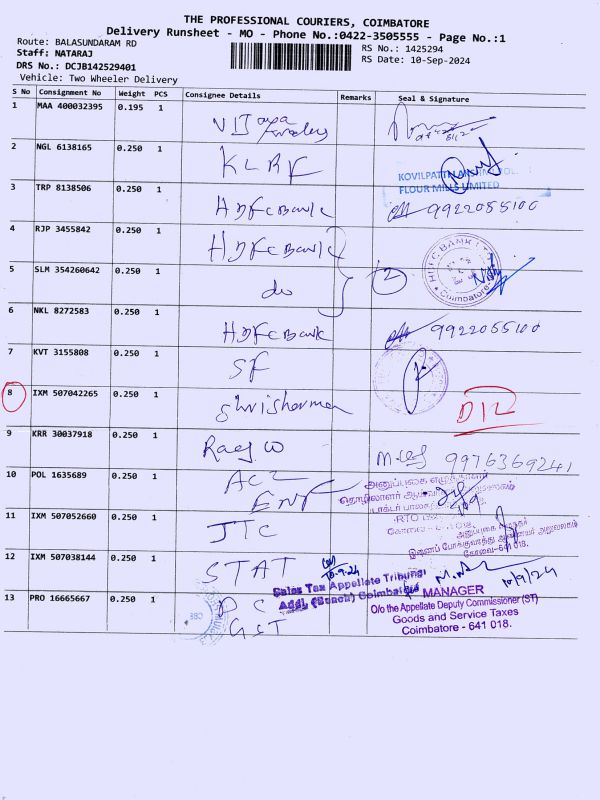 THE PROFESSIONAL COURIERS, COIMBATORE
Delivery Runsheet - MO - Phone No.:0422-3505555 - Page No.:1
Route: BALASUNDARAM RD
RS No.: 1425294
Staff: NATARAJ
RS Date: 10-Sep-2024
DRS No.: DCJB142529401
Vehicle: Two Wheeler Delivery
S No Consignment No Weight PCS Consignee Details Remarks Seal & Signature
1 MAA 400032395 0.195 1
2 NGL 6138165 0.250 1 KLRF
KOVILPATTI
FLOUR MILLS LIMITED
3 TRP 8138506 0.250 1 HDFC Bank 9922055100
4 RJP 3455842 0.250 1 HDFC Bank
HDFC BANK LTD
Coimbatore
5 SLM 354260642 0.250 1 do 2
6 NKL 8272583 0.250 1 HDFC Bank 9922055100
7 KVT 3155808 0.250 1 SF
8 IXM 507042265 0.250 1 Shrisharmen D12
9 KRR 30037918 0.250 1 9976369241
10 POL 1635689 0.250 1 ACL
ENT
11 IXM 507052660 0.250 1 JTC
கோவை-641 018.
12 IXM 507038144 0.250 1 STAT
10-9-24
Sales Tax Appellate Tribunal
Addl. (Bench) Coimbatore
10/9/24
13 PRO 16665667 0.250 1 DC
GST
MANAGER
O/o the Appellate Deputy Commissioner (ST)
Goods and Service Taxes
Coimbatore - 641 018.